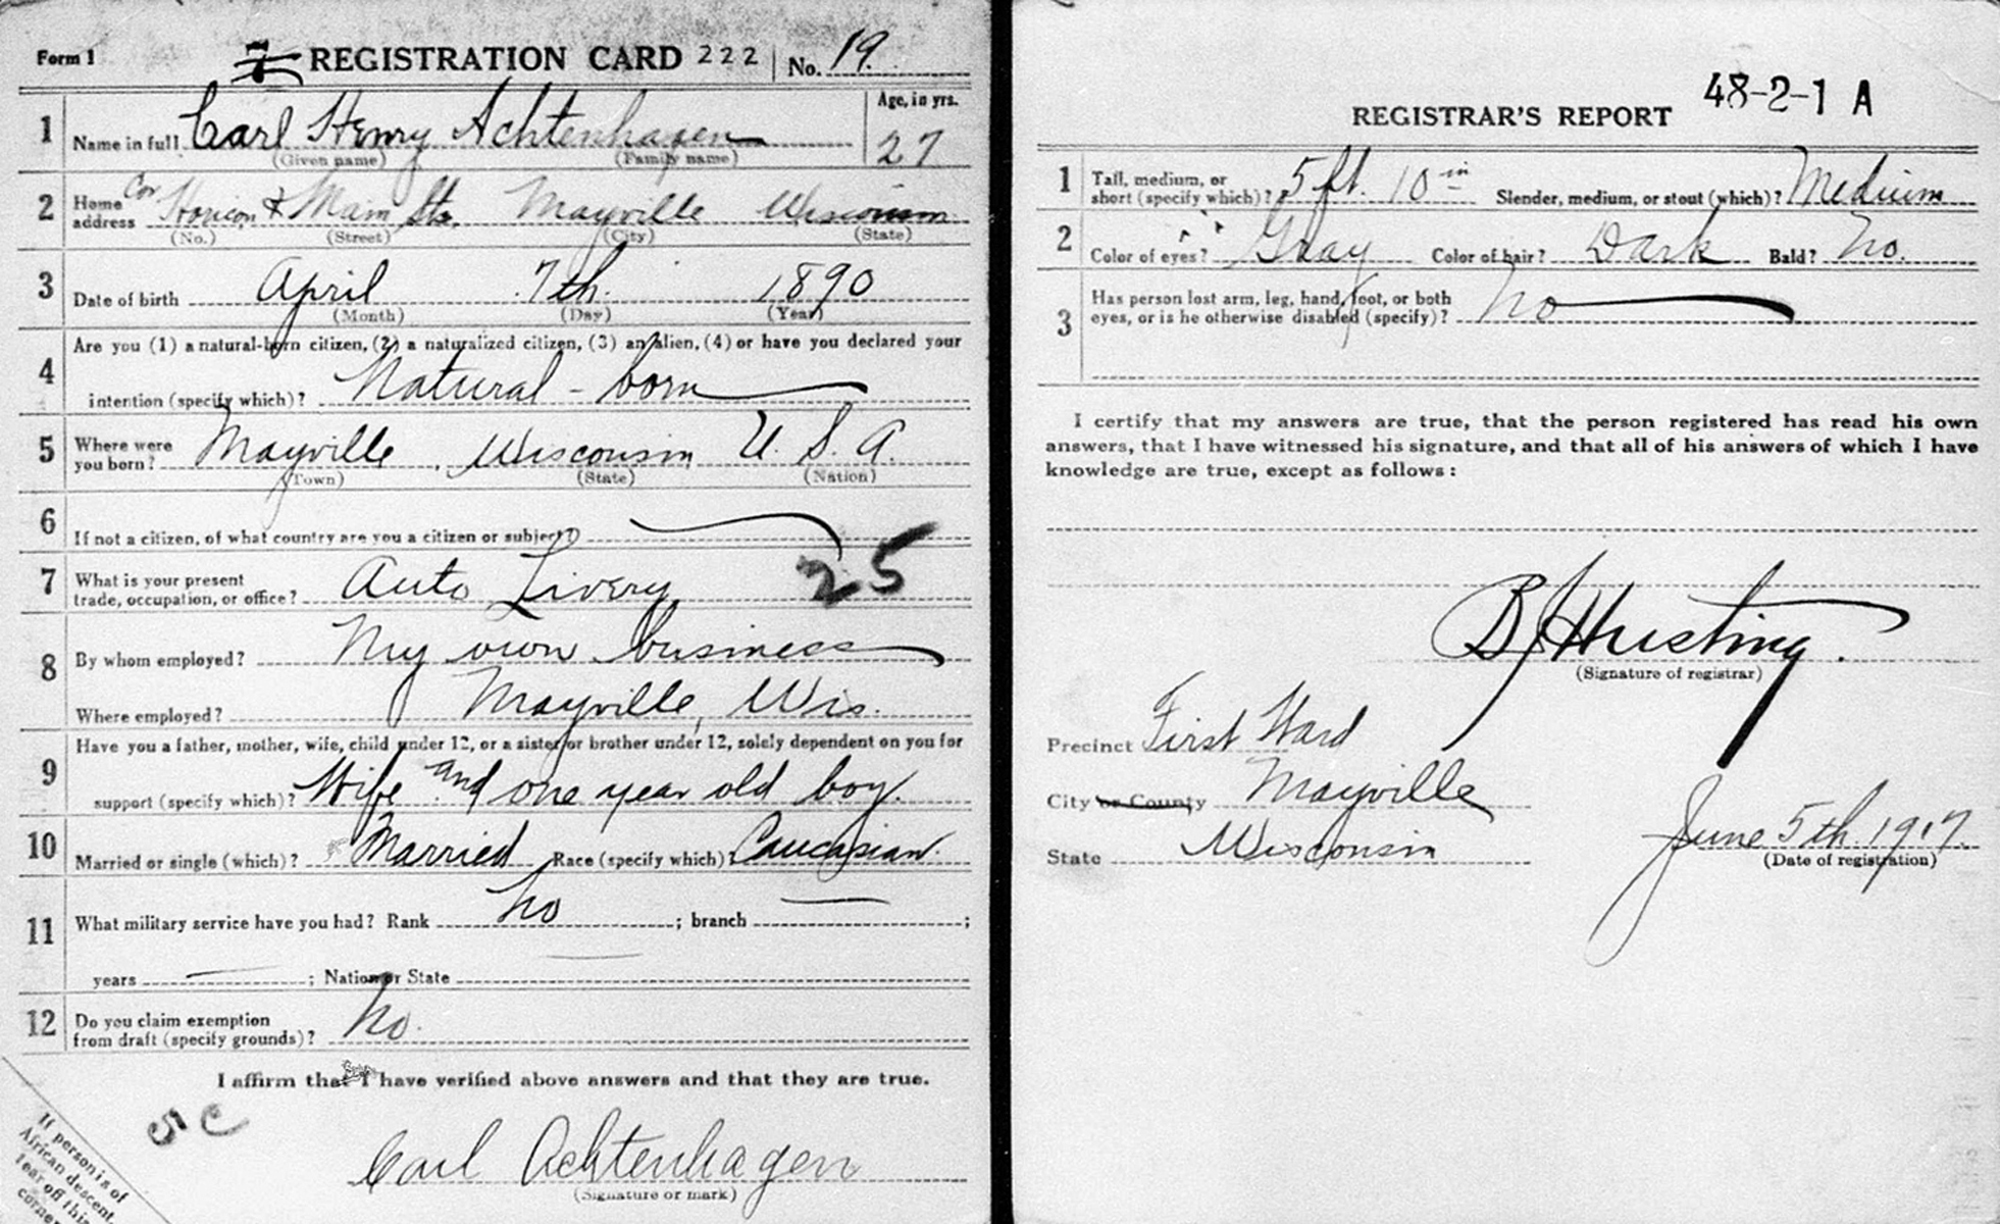 Form 1 7 REGISTRATION CARD 222 No. 19.
1 Name in full Carl Henry Achtenhagen Age, in yrs. 27
(Given name) (Family name)
2 Home address Cor Horicon & Main Sts. Mayville Wisconsin
(No.) (Street) (City) (State)
3 Date of birth April 7th. 1890
(Month) (Day) (Year)
4 Are you (1) a natural-born citizen, (2) a naturalized citizen, (3) an alien, (4) or have you declared your
intention (specify which)? Natural-born
5 Where were you born? Mayville, Wisconsin U. S. A.
(Town) (State) (Nation)
6 If not a citizen, of what country are you a citizen or subject?
7 What is your present trade, occupation, or office? Auto Livery 25
8 By whom employed? My own business
Where employed? Mayville, Wis.
9 Have you a father, mother, wife, child under 12, or a sister or brother under 12, solely dependent on you for
support (specify which)? Wife and one year old boy.
10 Married or single (which)? Married Race (specify which)? Caucasian.
11 What military service have you had? Rank No ; branch ;
years ; Nation or State
12 Do you claim exemption from draft (specify grounds)? No.
I affirm that I have verified above answers and that they are true.
5 C
Carl Achtenhagen
(Signature or mark)
If person is of
African descent,
tear off this
corner
REGISTRAR'S REPORT 48-2-1 A
1 Tall, medium, or short (specify which)? 5 ft. 10 in Slender, medium, or stout (which)? Medium
2 Color of eyes? Gray Color of hair? Dark Bald? No.
3 Has person lost arm, leg, hand, foot, or both
eyes, or is he otherwise disabled (specify)? No
I certify that my answers are true, that the person registered has read his own
answers, that I have witnessed his signature, and that all of his answers of which I have
knowledge are true, except as follows:
B J Husting.
(Signature of registrar)
Precinct First Ward
City or County Mayville
State Wisconsin June 5th. 1917.
(Date of registration)